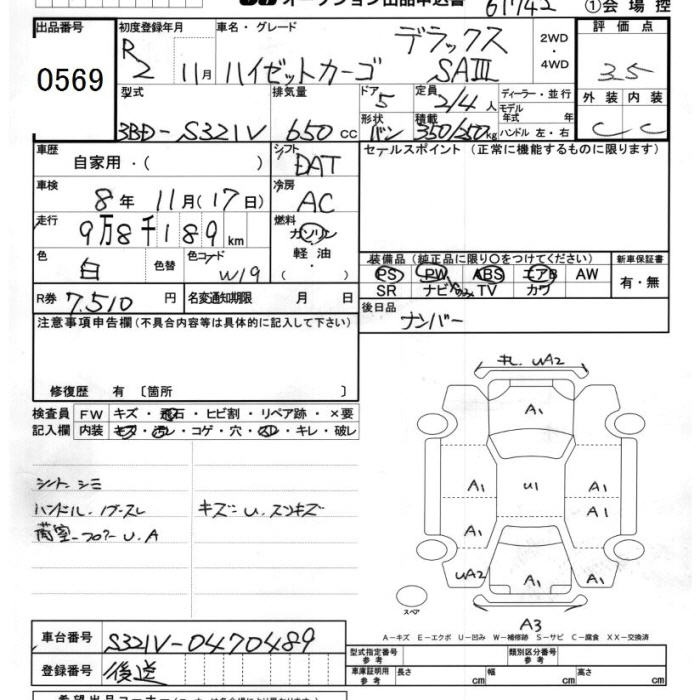 オークション出品申込書 61742 ①会場控
出品番号 初度登録年月 車名・グレード デラックス 2WD・4WD 評価点
0569 R2 11月 ハイゼットカーゴ SAⅢ 3.5
型式 排気量 ドア 5 定員 2/4人 ディーラー・並行 外装 内装
3BD-S321V 650cc 形状 バン 積載 350/250kg モデル年式 年式 ハンドル 左・右 C C
車歴 自家用・( ) シフト DAT セールスポイント (正常に機能するものに限ります)
車検 8年 11月(17日) 冷房 AC
走行 9万8千189km 燃料 ガソリン 軽油・( )
色 白 色替 色コード W19
装備品 (純正品に限り○をつけてください) 新車保証書
PS PW ABS エアB AW 有・無
SR ナビ TV カワ
R券 7,510円 名変通知期限 月 日 後日品 ナンバー
注意事項申告欄(不具合内容等は具体的に記入して下さい)
修復歴 有〔箇所 〕
検査員記入欄 FW キズ・飛石・ヒビ割・リペア跡・×要
内装 キズ・汚レ・コゲ・穴・スレ・キレ・破レ
シート シミ
ハンドル.ノブ-スレ キズ-U.スンキズ
荷室-フロアー U.A
キレ. UA2
A1
A1 U1 A1
A1 A1
UA2 A1 A1
スペア
A3
A-キズ E-エクボ U-凹み W-補修跡 S-サビ C-腐食 XX-交換済
車台番号 S321V-0470489
登録番号 後送
型式指定番号 参考 類別区分番号 参考
車庫証明用 参考 長さ cm 幅 cm 高さ cm